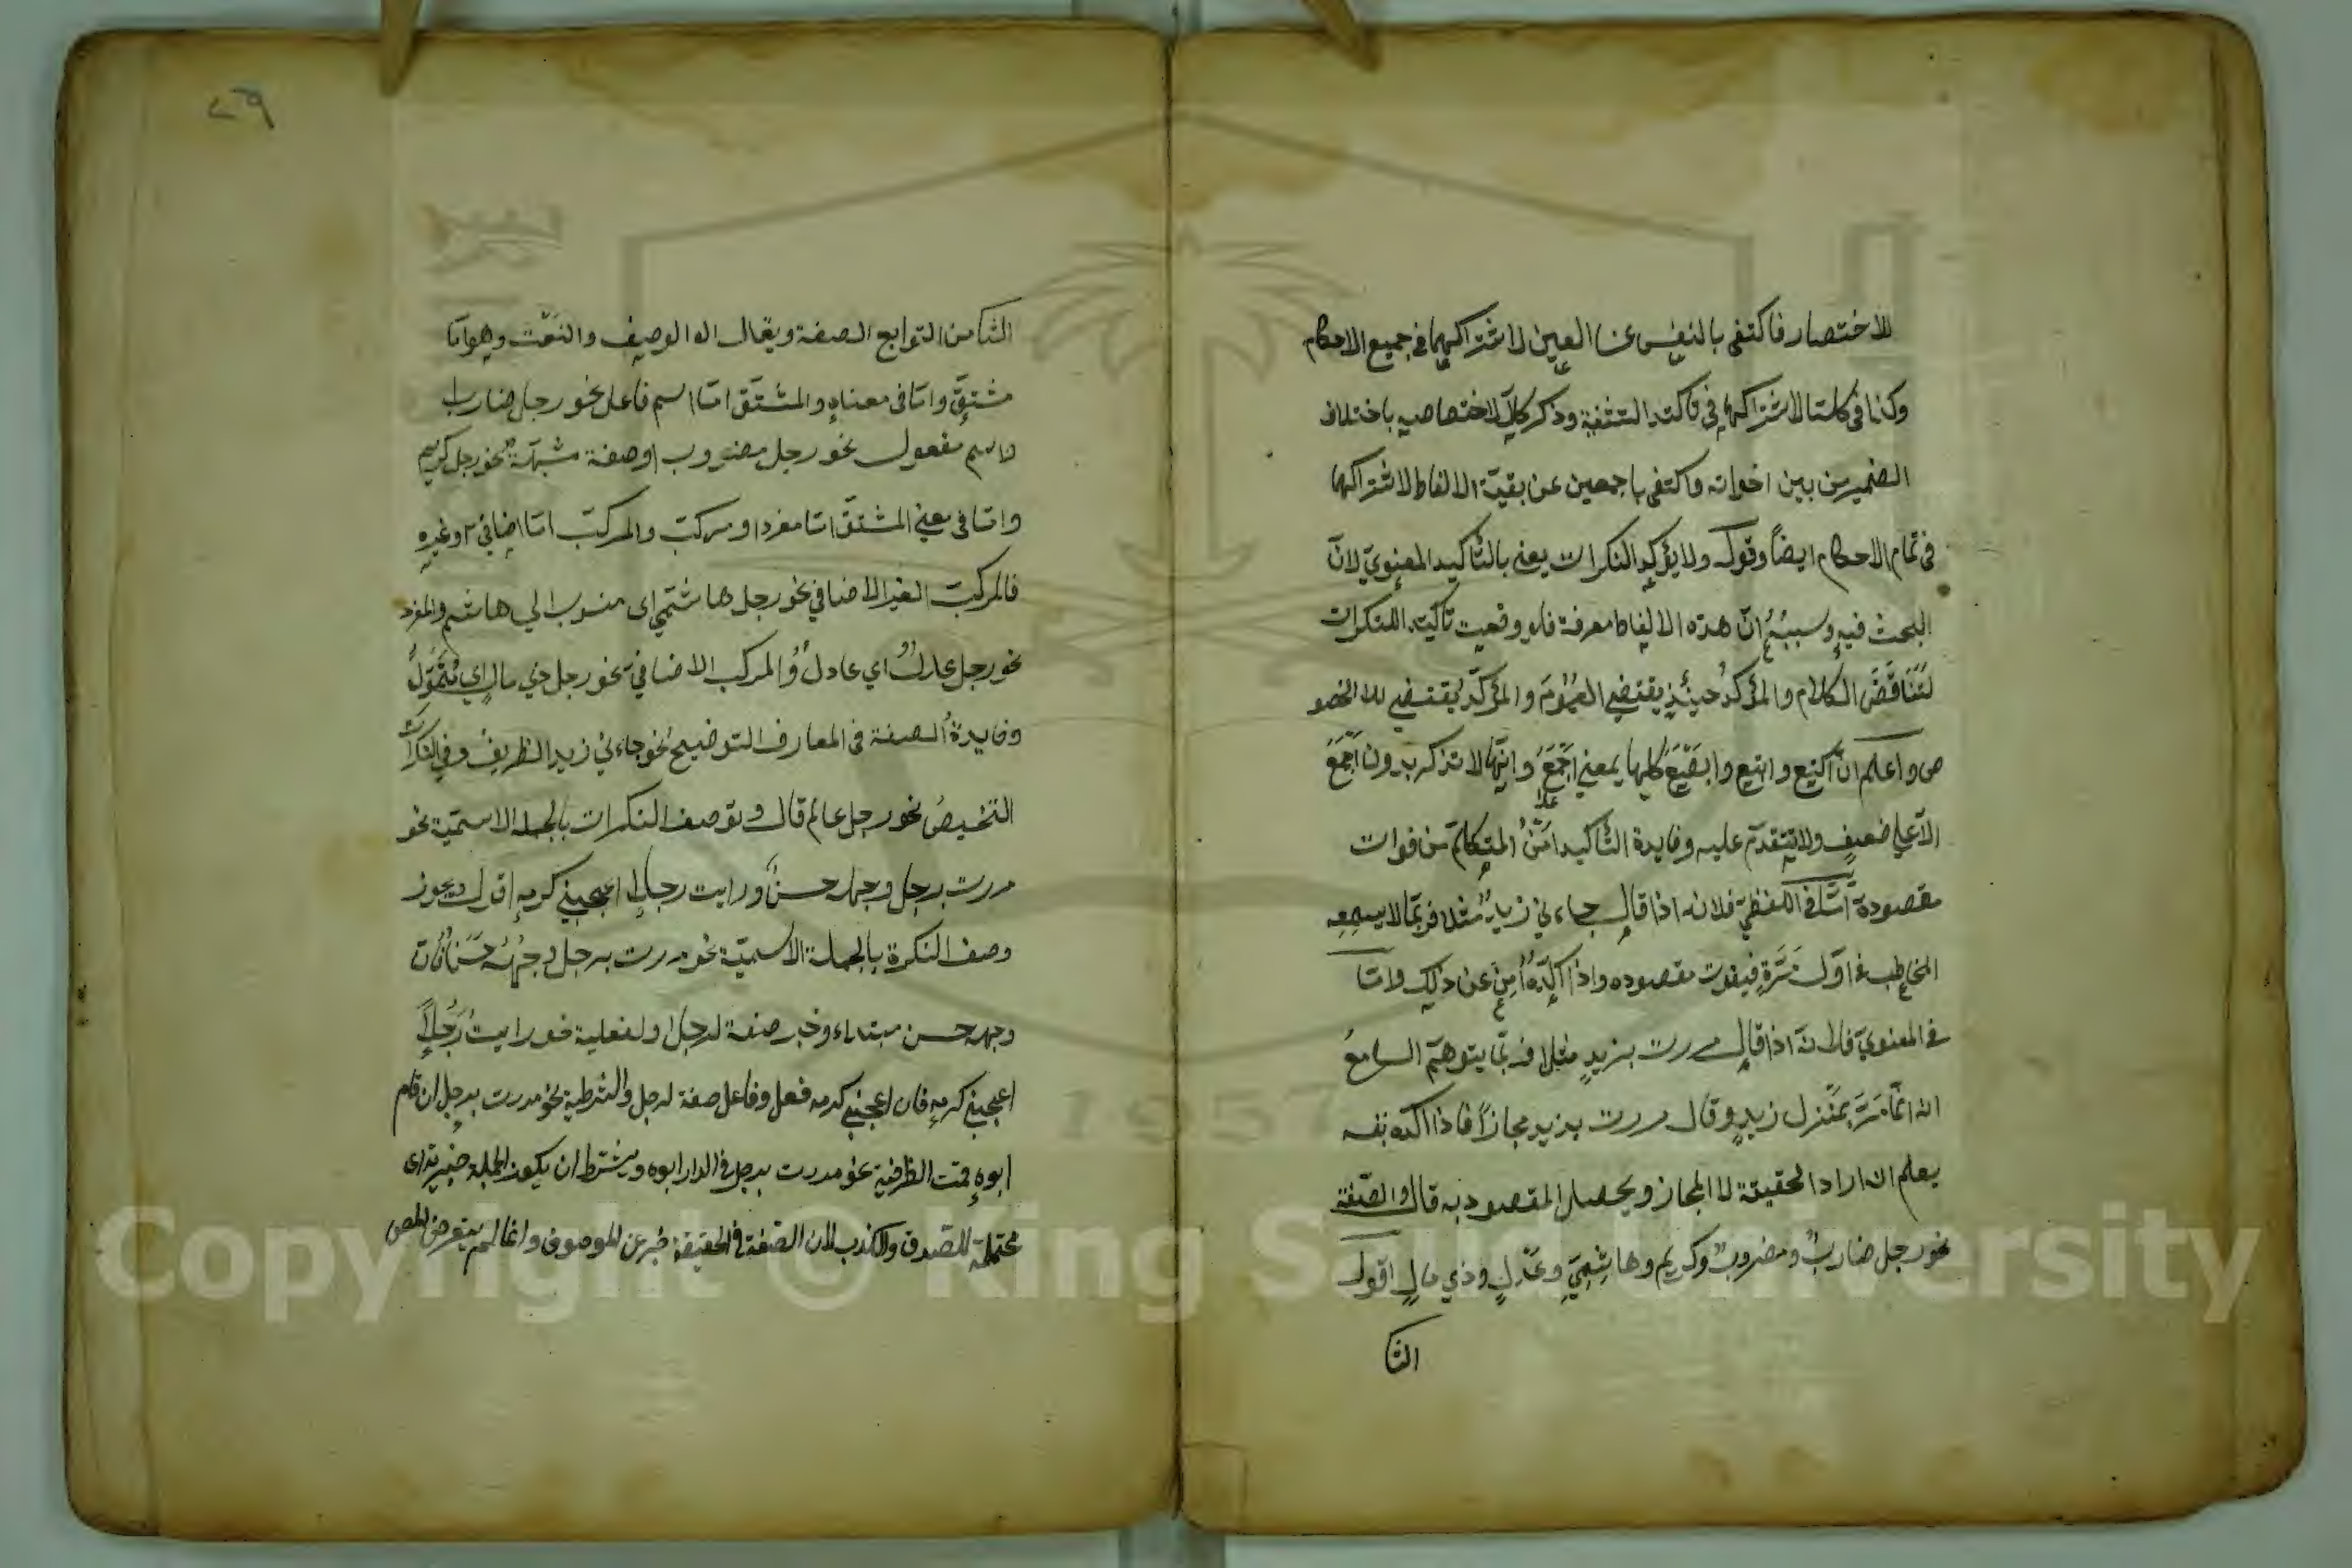 للاختصار فاكتفى بالنفس عن العين لاشتراكهما في جميع الاحكام
وكذا في كلتا لاشتراكهما في تاكيد التثنية وذكر كلا لاختصاصه باختلاف
الضمير من بين اخواته واكتفى باجمعين عن بقية الالفاظ لاشتراكها
في تمام الاحكام ايضاً وقوله ولا يؤكد النكرات يعني بالتأكيد المعنويّ لانّ
البحث فيه وسببه انّ هذه الالفاظ معرفة فلو وقعت تاكيد النكرات
لتناقض الكلام والمؤكد حينئذ يقتضي العموم والمؤكّد يقتضي للا الخصو
ص واعلم انّ اكتع وابتع وابصع كلها بمعنى اجمع وانّها لا تذكر بدون اجمع
الاّ على ضعيف ولا تتقدّم عليه وفايدة التأكيد امن المتكلّم من فوات
مقصودة امّا في اللفظيّ فلانه اذا قال جاءني زيد مثلا فربّما لا يسمعه
المخاطب في اوّل مرّة فيفوت مقصوده واذا اكّده امن عن ذلك وامّا
في المعنويّ فلانّه اذا قال مررت بزيدٍ مثلا فربّما يتوهّم السامع
انه انّما مرّ بمنزل زيدٍ وقال مررت بزيد مجازاً فاذا اكّده بنفسه
يعلم انه اراد الحقيقة لا المجاز ويحصل المقصود به قال والصّفة
نحو رجل ضاربٌ ومضروبٌ وكريم وهاشميّ وعدلٍ وذي مالٍ اقول
الثا
٢٩
الثاني من التوابع الصفة ويقال له الوصف والنعت وهو امّا
مشتقّ وامّا في معناه والمشتقّ امّا اسم فاعل نحو رجل ضارب
واسم مفعول نحو رجل مضروب او صفة مشبّهة نحو رجل كريم
وامّا في معنى المشتقّ امّا مفرد او مركّب والمركّب امّا اضافيّ او غيره
فالمركّب الغير الاضافي نحو رجل هاشمّي اى منسوب الي هاشم والمفرد
نحو رجل عدلٌ اي عادلٌ والمركب الاضافيّ نحو رجل ذي مال اي متموّل
وفايدة الصفة في المعارف التوضيح نحو جاءني زيد الظريف وفي النكرات
التخصيص نحو رجل عالم قال وتوصف النكرات بالجملة الاسميّة نحو
مررت برجل وجهه حسنٌ ورايت رجلا اعجبني كرمه اقول ويجوز
وصف النكرة بالجملة الاسميّة نحو مررت برجل وجهه حسن فانّ
وجهه حسن مبتداء وخبر صفة لرجل اولفعلية نحو رايت رجلاً
اعجبني كرمه فان اعجبني كرمه فعل وفاعل صفة لرجل والشرطية نحو مررت برجل ان قام
ابوه قمت الظرفية نحو مررت برجل في الدار ابوه ويشترط ان يكون الجملة خبريّة اى
محتملة للصّدق والكذب لان الصّفة في الحقيقة خبر عن الموصوف وانما لم يتعرض المص